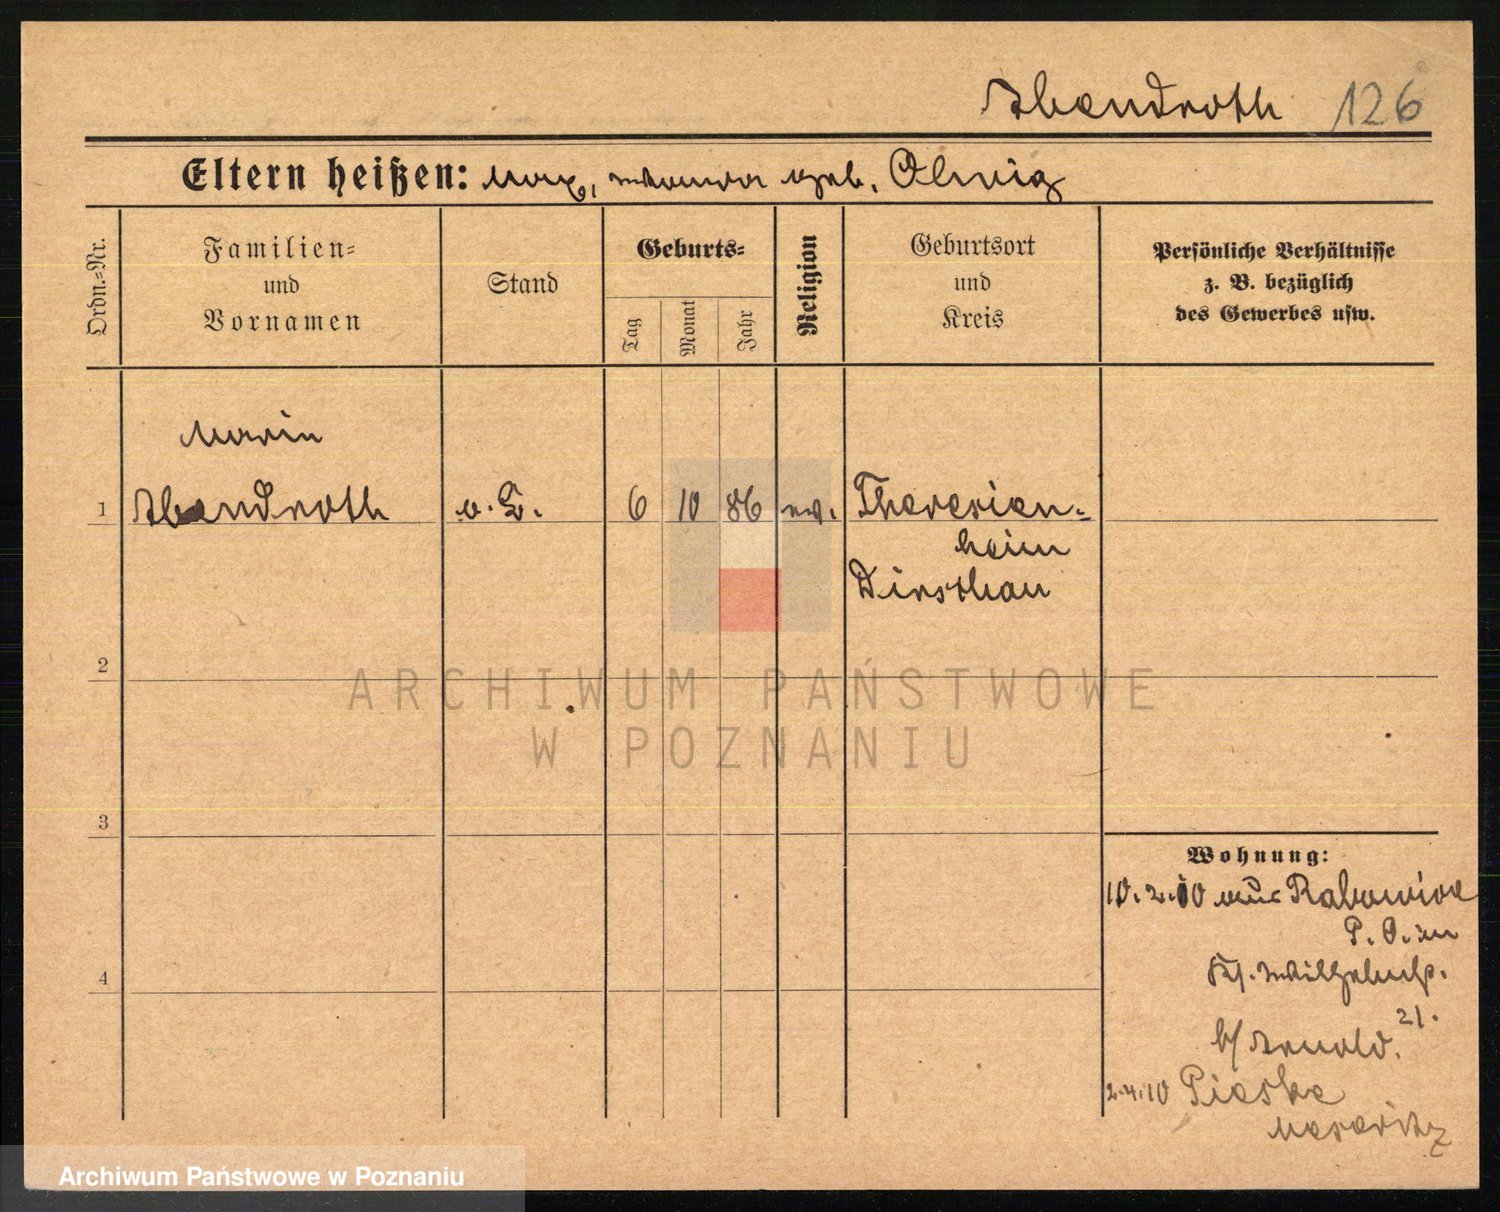 Abendroth 126
Eltern heißen: Max, Wanda geb. Olwig
Ordn.-Nr.
Familien-
und
Vornamen
Stand
Geburts-
Tag
Monat
Jahr
Religion
Geburtsort
und
Kreis
Persönliche Verhältnisse
z. B. bezüglich
des Gewerbes usw.
Marie
1 Abendroth o. 6 10 86 ev. Theresien-
heim
Dirschau
2
3
4
Wohnung:
10. 2. 10 aus Rabowice
P. O. in
Ks. Wilhelmstr.
21.
b/ Arnold.
2.4.10 Pieske
Meseritz
ARCHIWUM PAŃSTWOWE
W POZNANIU
Archiwum Państwowe w Poznaniu